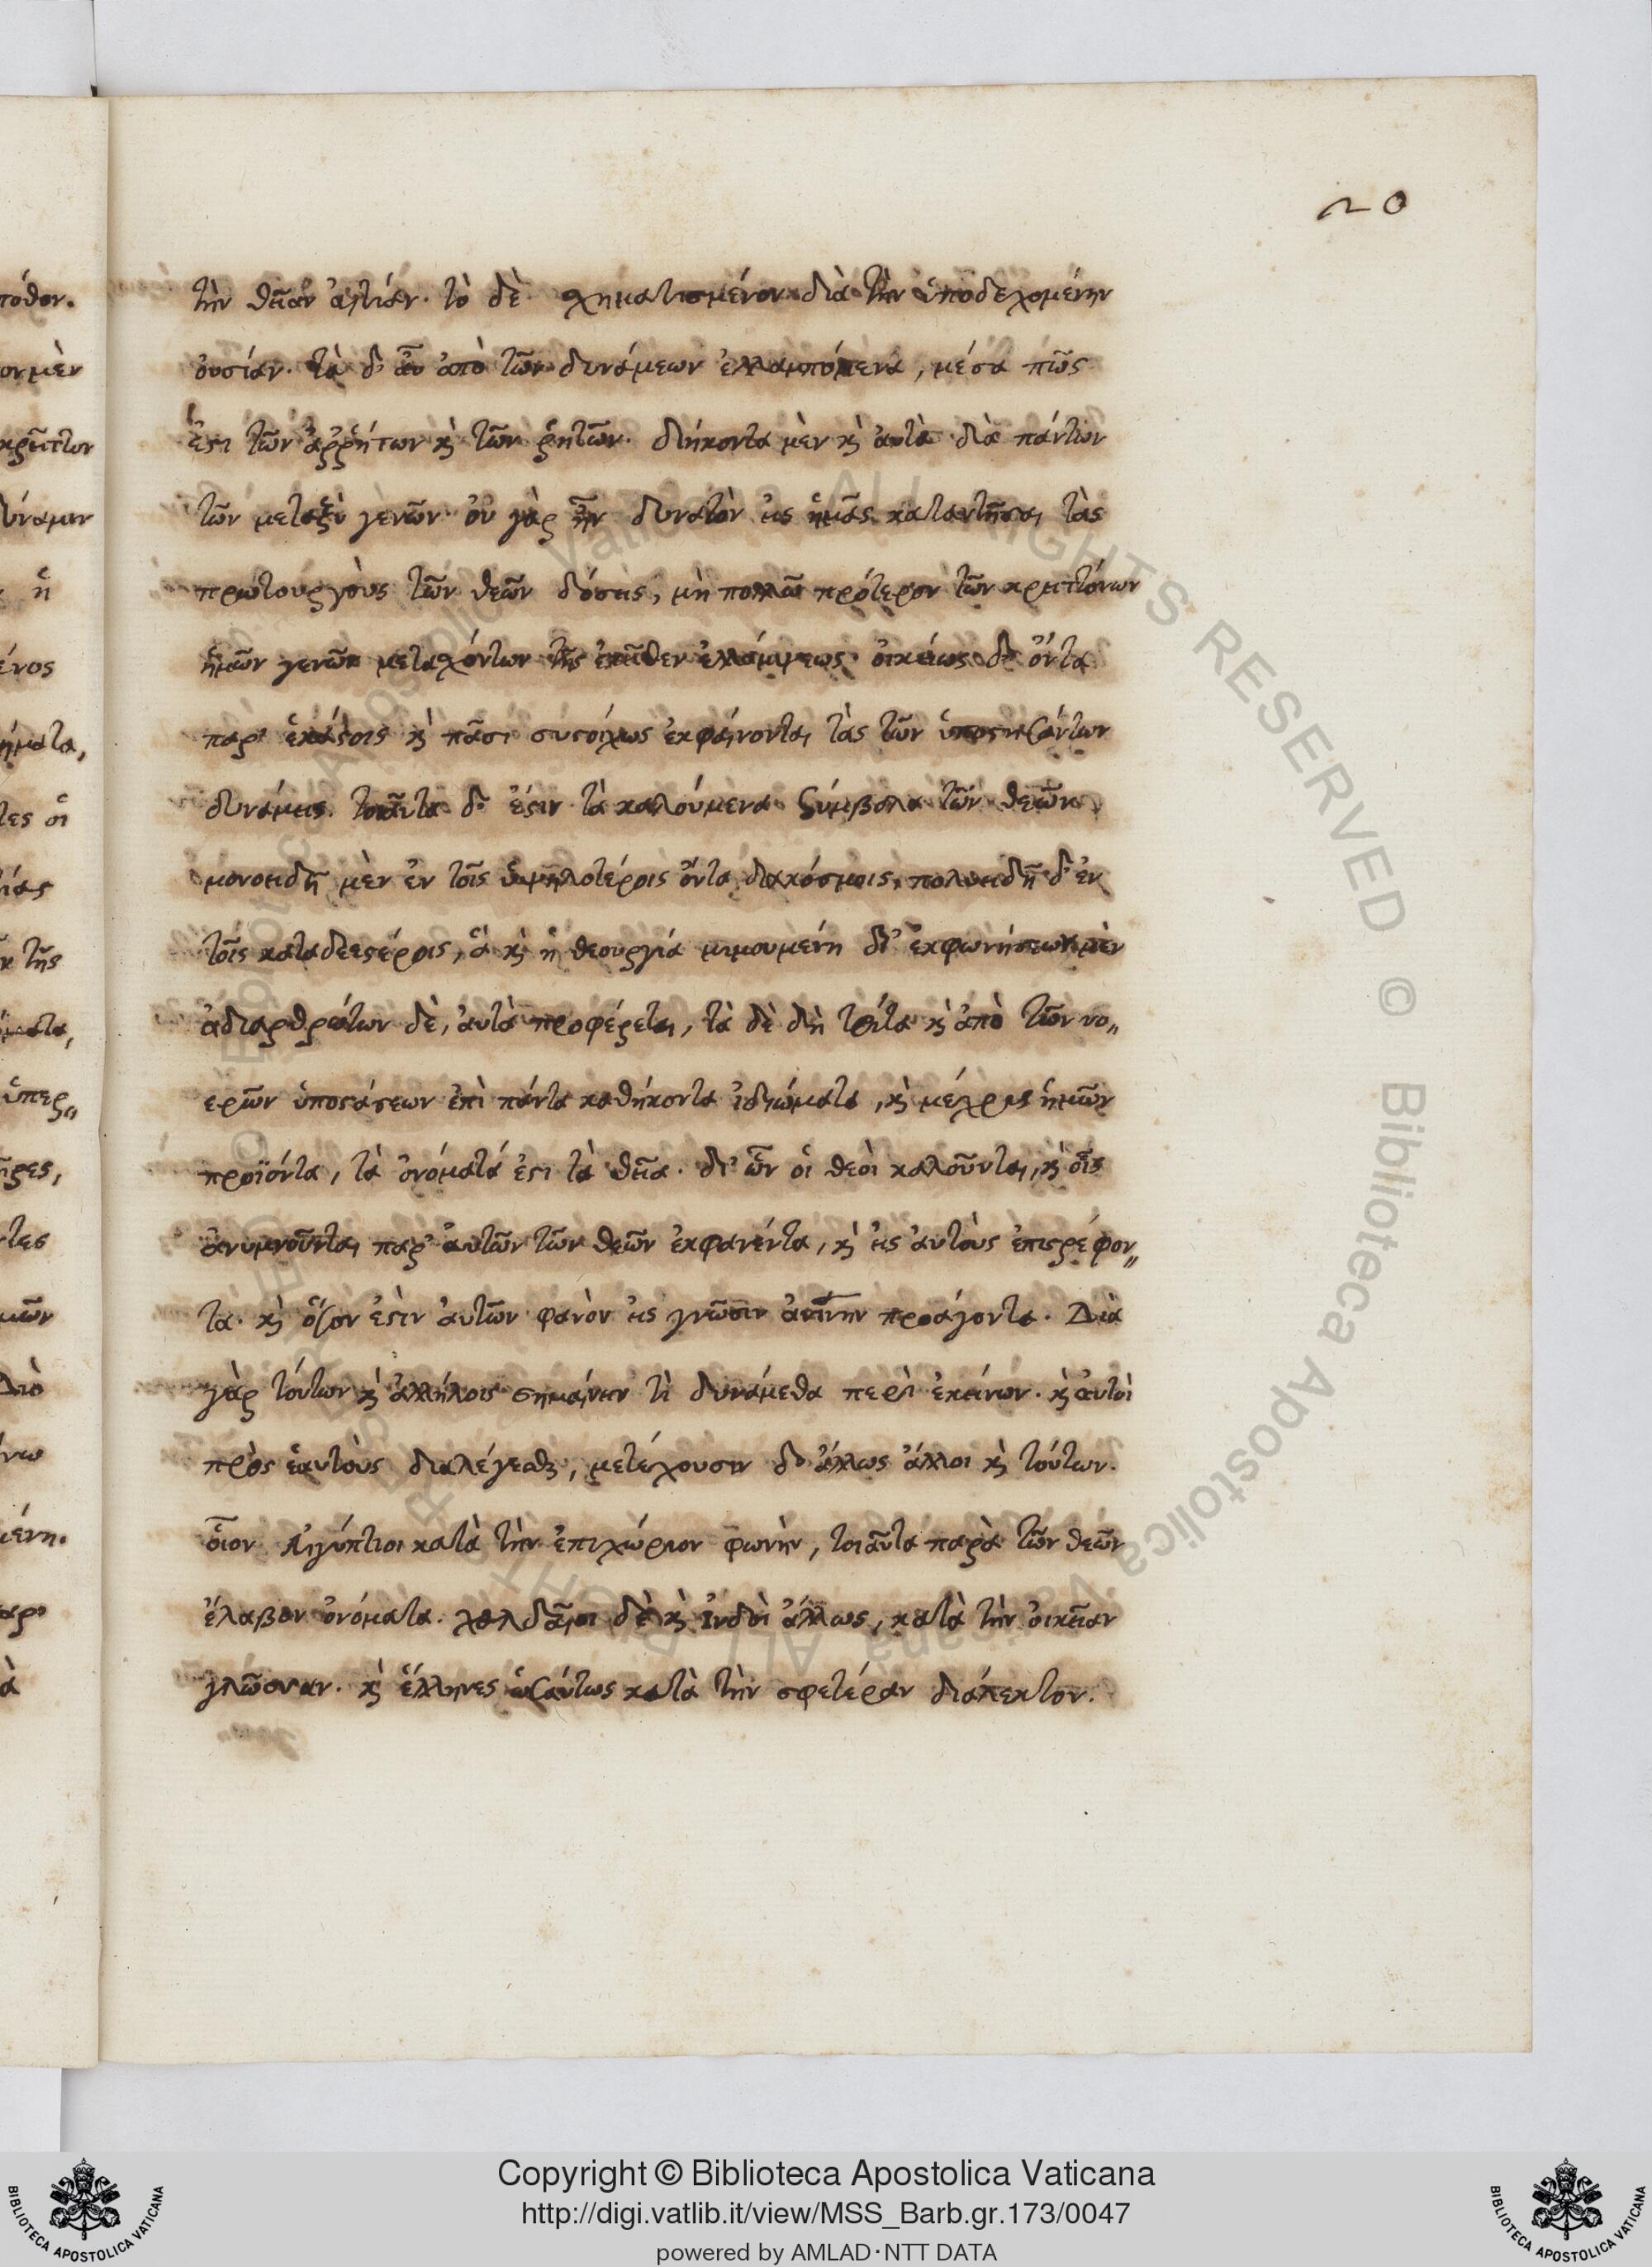 20
τὴν θείαν ἀιτίαν. τὸ δὲ χηματισμένον διὰ τὴν ὑποδεχομένην
ὀυσίαν. τὰ δ' ἆυ ἀπὸ τῶν δυνάμεων ἐλλαμπόμενα, μέσα πῶς
ἐστι τῶν ἀῤῥήτων κὶ τῶν ῥητῶν. διήκοντα μὲν κὶ ἀυτὰ διὰ πάντων
τῶν μεταξὺ γενῶν. ὀυ γὰρ ἦν δυνατὸν ἐις ἡμᾶς καταντῆσαι τὰς
πρωτουργοὺς τῶν θεῶν δόσεις, μὴ πολλῶ πρότερον τῶν κρειττόνων
ἡμῶν γενῶν μετασχόντων τῆς ἐκεῖθεν ἐλλάμψεως. ὀικείως δ' ὄντα
παρ' ἑκάστοις κὶ πᾶσι συστοίχως ἐκφαίνονται τὰς τῶν ὑποστησάντων
δυνάμεις. τοιᾶυτα δ' ἐστιν τὰ καλούμενα ξύμβολα τῶν θεῶν.
μονοειδῆ μὲν ἐν τοῖς ὑψηλοτέροις ὄντα διακόσμοις, πολυειδῆ δ' ἐν
τοῖς καταδεεστέροις, ἃ κὶ ἡ θεουργία μιμουμένη δι' ἐκφωνήσεων μὲν
ἀδιαρθρώτων δὲ, ἀυτὰ προφέρεται, τὰ δὲ δὴ τρίτα κὶ ἀπὸ τῶν νο„
ερῶν ὑποστάσεων ἐπὶ πάντα καθήκοντα ἰδιώματα, κὶ μέχρις ἡμῶν
προϊόντα, τὰ ὀνόματά ἐστι τὰ θεῖα. δι' ὧν ὁι θεὸι καλοῦνται, κὶ οἷς
ἀνυμνοῦνται παρ' ἀυτῶν τῶν θεῶν ἐκφανέντα, κὶ ἐις ἀυτοὺς ἐπιστρέφον„
τα. κὶ ὅσον ἐστὶν ἀυτῶν φανὸν ἐις γνῶσιν προάγοντα. Διὰ
γὰρ τούτων κὶ ἀλλήλοις σημαίνειν τὶ δυνάμεθα περὶ ἐκείνων. κὶ ἀυτοὶ
πρὸς ἑαυτοὺς διαλέγεσθαι, μετέχουσιν δ' ἄλλως ἄλλοι κὶ τούτων.
οἷον Αἰγύπτιοι κατὰ τὴν ἐπιχώριον φωνὴν, τοιᾶυτα παρὰ τῶν θεῶν
ἔλαβον ὀνόματα. χαλδᾶιοι δὲ κὶ Ἰνδοὶ ἄλλως, κατὰ τὴν ὀικείαν
γλῶσσαν. κὶ ἕλληνες ὡσαύτως κατὰ τὴν σφετέραν διάλεκτον.
Copyright © Biblioteca Apostolica Vaticana
http://digi.vatlib.it/view/MSS_Barb.gr.173/0047
powered by AMLAD·NTT DATA